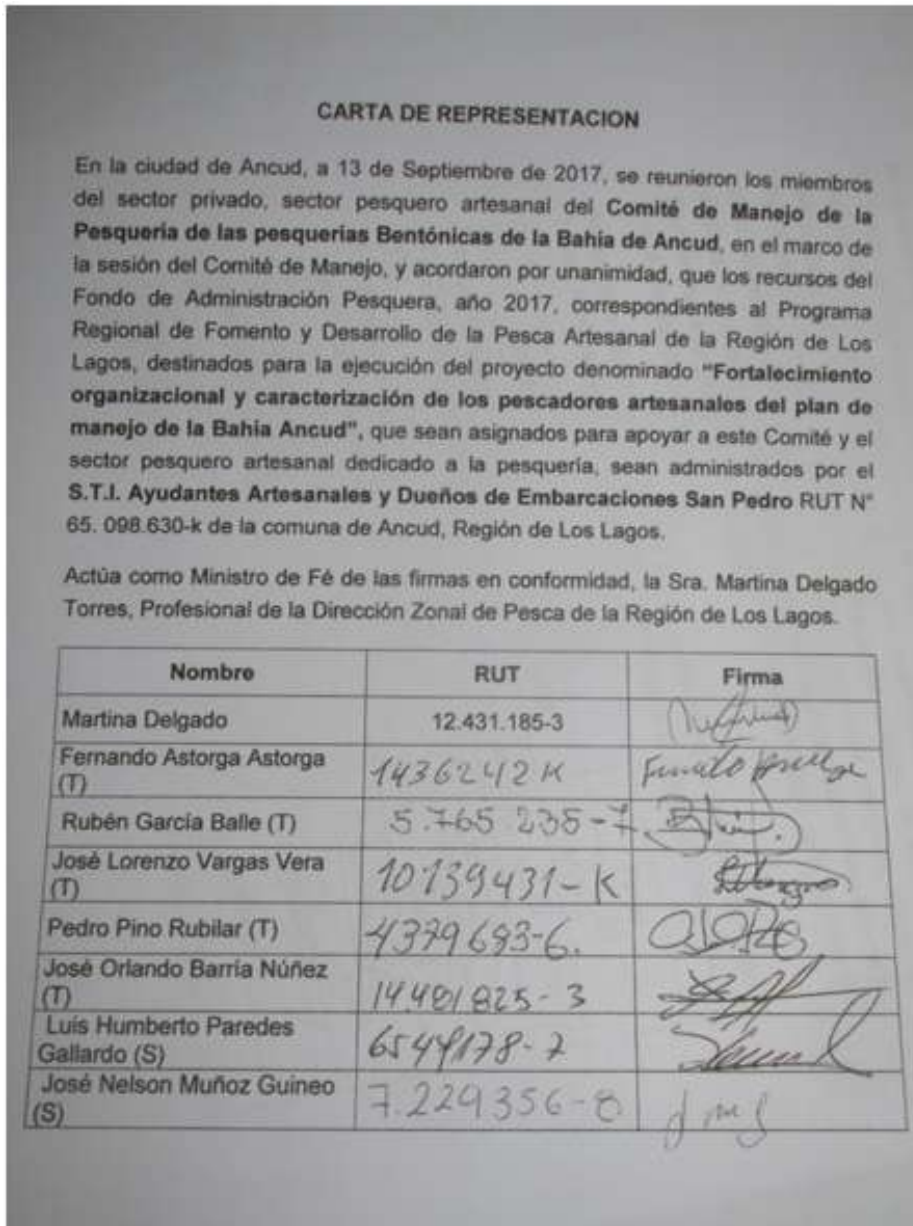 CARTA DE REPRESENTACION
En la ciudad de Ancud, a 13 de Septiembre de 2017, se reunieron los miembros
del sector privado, sector pesquero artesanal del Comité de Manejo de la
Pesquería de las pesquerías Bentónicas de la Bahía de Ancud, en el marco de
la sesión del Comité de Manejo, y acordaron por unanimidad, que los recursos del
Fondo de Administración Pesquera, año 2017, correspondientes al Programa
Regional de Fomento y Desarrollo de la Pesca Artesanal de la Región de Los
Lagos, destinados para la ejecución del proyecto denominado "Fortalecimiento
organizacional y caracterización de los pescadores artesanales del plan de
manejo de la Bahía Ancud", que sean asignados para apoyar a este Comité y el
sector pesquero artesanal dedicado a la pesquería, sean administrados por el
S.T.I. Ayudantes Artesanales y Dueños de Embarcaciones San Pedro RUT N°
65. 098.630-k de la comuna de Ancud, Región de Los Lagos.
Actúa como Ministro de Fé de las firmas en conformidad, la Sra. Martina Delgado
Torres, Profesional de la Dirección Zonal de Pesca de la Región de Los Lagos.
Nombre RUT Firma
Martina Delgado 12.431.185-3
Fernando Astorga Astorga
(T) 1436242K
Rubén García Balle (T) 5.765 235-7
José Lorenzo Vargas Vera
(T) 10139431-K
Pedro Pino Rubilar (T) 4379693-6.
José Orlando Barría Núñez
(T) 14.481825-3
Luis Humberto Paredes
Gallardo (S)
José Nelson Muñoz Guineo
(S) 7.229356-8